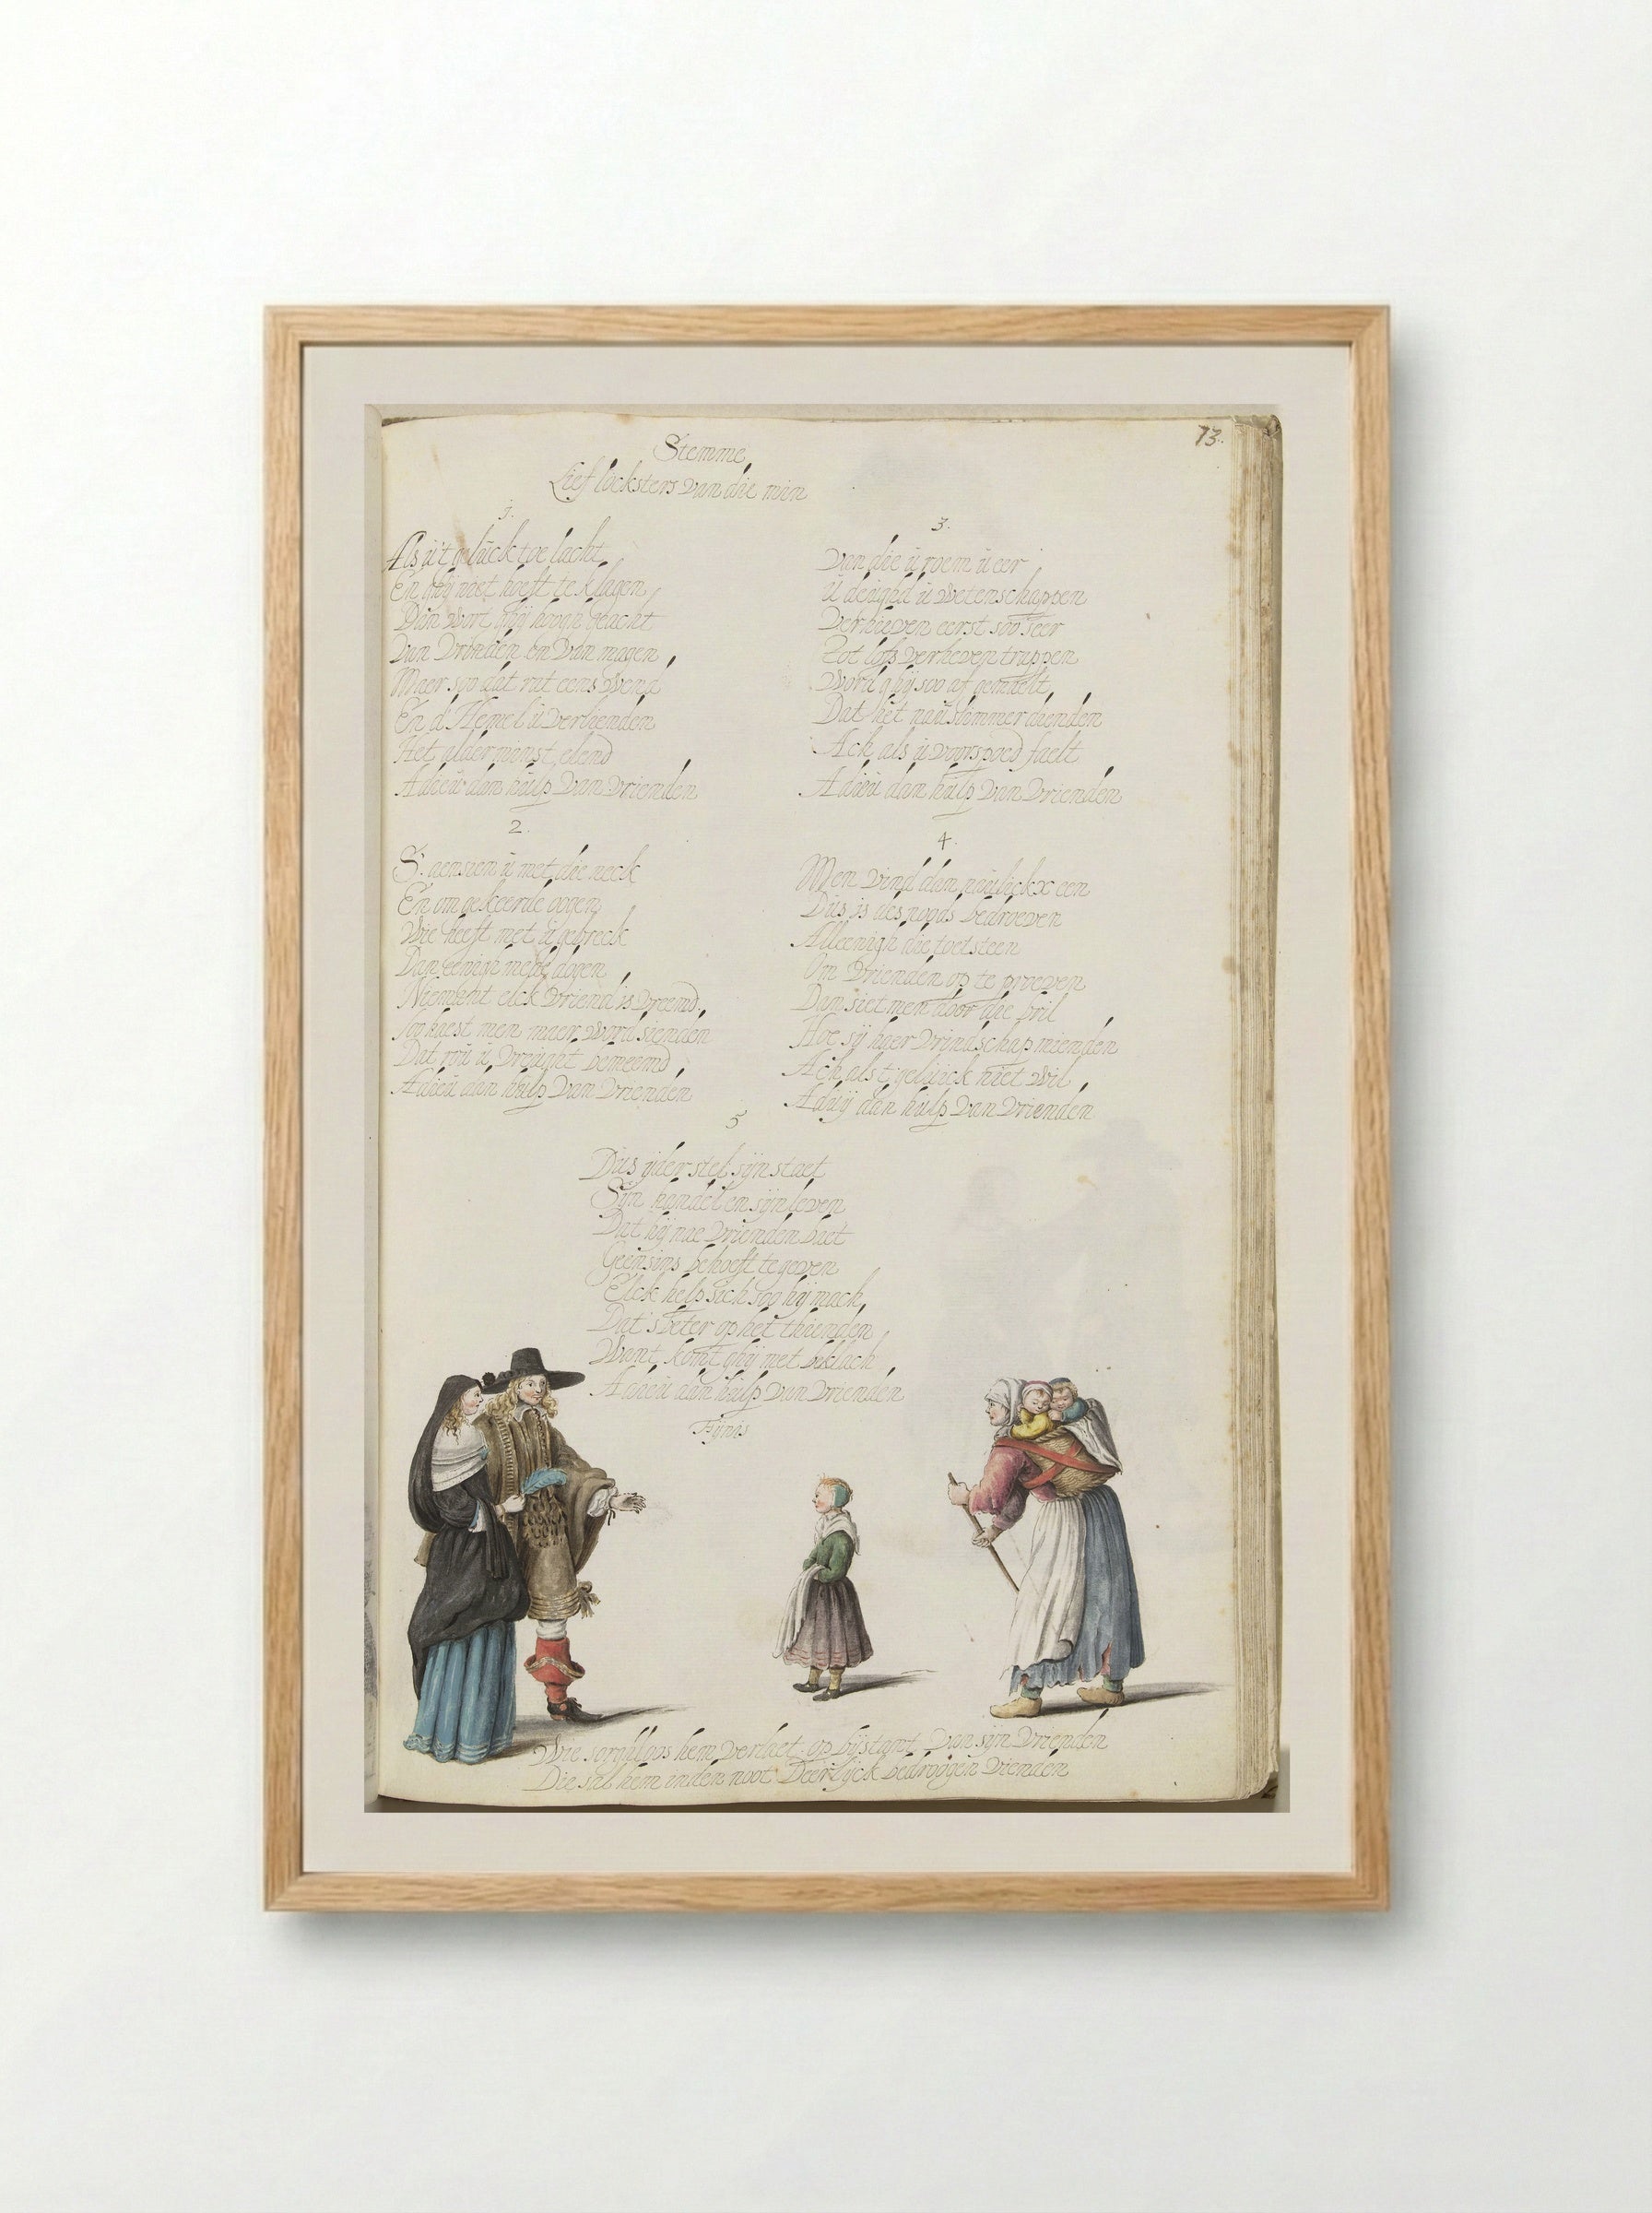 73.
Stemme
Lief locksters van die min
1.
Als u't geluck toe lacht,
En ghij niet hoeft te klagen,
Dan wort ghij hoogh geacht
Van Vrinden en Van magen,
Maer soo dat rat eens Wend
En d'Hemel u Verlienden
Het aldermeinst elend
Adieu dan hulp Van Vrienden
2.
S' aensien u met die neck
En om gekeerde oogen,
Wie heeft met u gebreck
Dan eenigh mede dogen,
Niemant elck Vriend is Vreemd,
Soo haest men maer Word sienden
Dat rou u Vreught beneemd,
Adieu dan hulp Van Vrienden
3.
Van die u roem u eer
U deughd u Wetenschappen
Verhieven eerst soo seer
Tot lofs Verheven trappen
Word ghij soo af gemaelt,
Dat het nau slimmer dienden
Ach als u Voorspoed faelt
Adieu dan hulp Van Vrienden
4.
Men Vind dan naulickx een
Dus is des noods bedroeven
Alleenigh die toetsteen
Om Vrienden op te proeven
Dan siet men door die bril
Hoe sij haer Vrindschap mienden
Ach als t'geluick niet Wil,
Aduij dan hulp Van Vrienden
5
Dus ijder stel sijn staet
Sijn handel en sijn leven
Dat hij nae Vrienden baet
Geensins behoeft te geven
Elck help sich soo hij mach,
Dat's beter op het thienden
Want komt ghij met beklach,
Adieu dan hulp Van Vrienden
Fijnis
Wie sorghloos hem Verlaet op bijstant Van sijn Vrienden
Die sal hem in den noot Deerlijck bedroogen Vienden